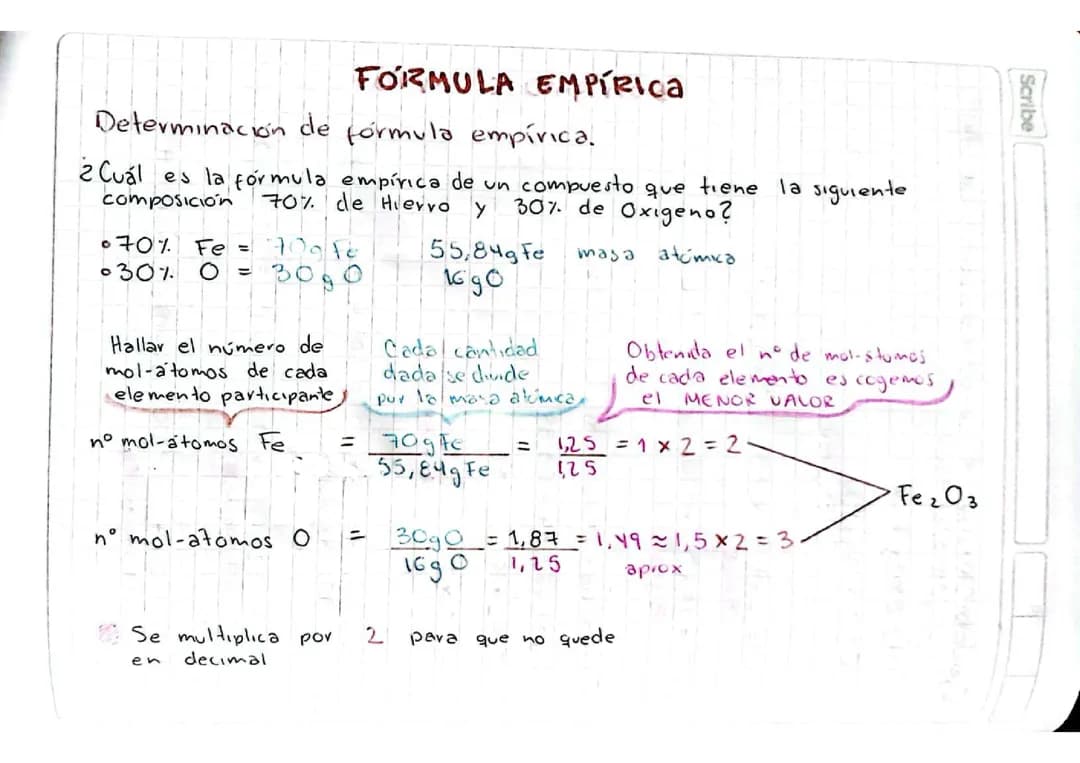 FORMULA EMPÍRICA
Determinación de fórmula empírica.
¿Cuál es la fórmula empírica de un compuesto que tiene la siguiente
composición 70% de Hierro y 30% de Oxigeno?
• 70% Fe = 70g Fe 55,84g Fe masa atómica
• 30% O = 30g O 16gO
Hallar el número de
mol-átomos de cada
elemento participante
Cada cantidad
dada se divide
por la masa atómica
Obtenida el nº de mol-átomos
de cada elemento escogemos
el MENOR VALOR
nº mol-átomos Fe = 70gFe / 55,84gFe = 1,25 / 1,25 = 1 x 2 = 2
Fe2O3
nº mol-atomos O = 30gO / 16gO = 1,87 / 1,25 = 1,49 ≈ 1,5 x 2 = 3
aprox
Se multiplica por 2 para que no quede
en decimal
Scribe